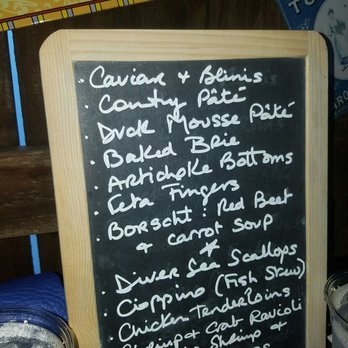 · Caviar + Blinis
· Country Pâté
· Duck Mousse Pâté
· Baked Brie
· Artichoke Bottoms
· Feta Fingers
· Borscht: Red Beet
+ carrot soup
*
· Diver Sea Scallops
· Cioppino (Fish Stew)
· Chicken Tenderloins
· Shrimp + Crab Ravioli
Shrimp +